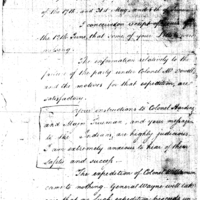 of the 17th and 31st May, and the
I
the 17th June, that some of your
The information relatively to the
of the party under Colonel
and the motives for that expedition, are
satisfactory.
Your instructions to Colonel
and Major Trueman, and your messages
to the Indians, are highly judicious.
I am extremely anxious to hear of their
safety and success.
The expedition of Colonel
came to nothing. General Wayne will take
care that no such expedition proceeds in